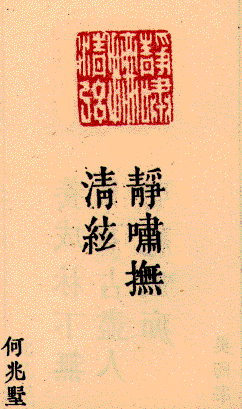 靜嘯撫
清絃
靜嘯撫
清絃
何兆墅